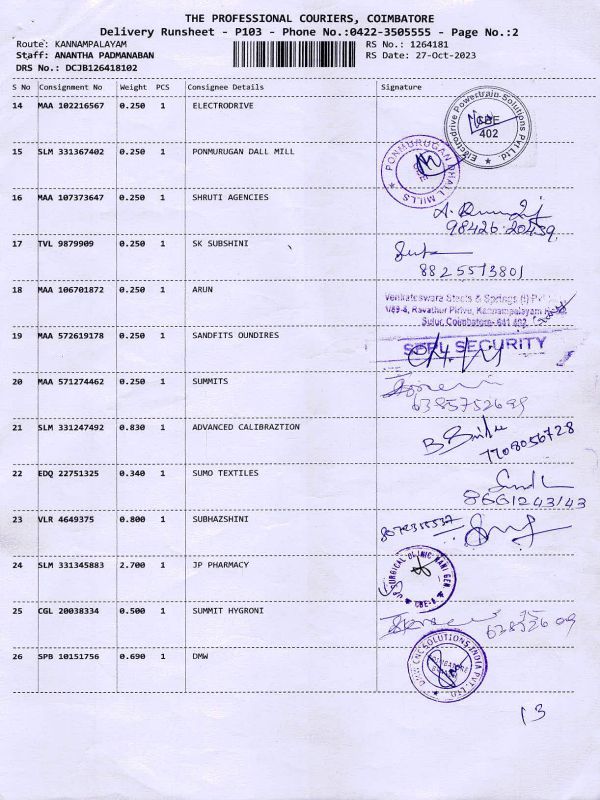 THE PROFESSIONAL COURIERS, COIMBATORE
Delivery Runsheet - P103 - Phone No.:0422-3505555 - Page No.:2
Route: KANNAMPALAYAM RS No.: 1264181
Staff: ANANTHA PADMANABAN RS Date: 27-Oct-2023
DRS No.: DCJB126418102
S No Consignment No Weight PCS Consignee Details Signature
14 MAA 102216567 0.250 1 ELECTRODRIVE
Electrodrive Powertrain Solutions Pvt Ltd. CBE 402
15 SLM 331367402 0.250 1 PONMURUGAN DALL MILL
PONMURUGAN DHALL MILLS CBE
16 MAA 107373647 0.250 1 SHRUTI AGENCIES
98426 20459
17 TVL 9879909 0.250 1 SK SUBSHINI
8825513801
18 MAA 106701872 0.250 1 ARUN
Venkateswara Steels & Springs (I) Pvt
1/89-6, Ravathur Pirivu, Kannampalayam
Sulur, Coimbatore- 641 402.
19 MAA 572619178 0.250 1 SANDFITS OUNDIRES
SECURITY
20 MAA 571274462 0.250 1 SUMMITS
6385752699
21 SLM 331247492 0.830 1 ADVANCED CALIBRAZTION
7708056728
22 EDQ 22751325 0.340 1 SUMO TEXTILES
8661243143
23 VLR 4649375 0.800 1 SUBHAZSHINI
24 SLM 331345883 2.700 1 JP PHARMACY
SURGICAL CLINIC CBE
25 CGL 20038334 0.500 1 SUMMIT HYGRONI
26 SPB 10151756 0.690 1 DMW
DMW CNC SOLUTIONS INDIA PVT. LTD. COIMBATORE
13